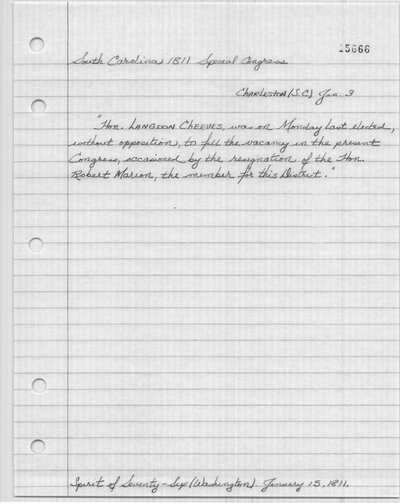 15666
South Carolina 1811 Special Congress
Charleston (S.C.) Jan. 3
"Hon. LANGDON CHEEVES, was on Monday last elected,
without opposition, to fill the vacancy in the present
Congress, occasioned by the resignation of the Hon.
Robert Marion, the member for this District."
Spirit of Seventy-Six (Washington). January 15, 1811.